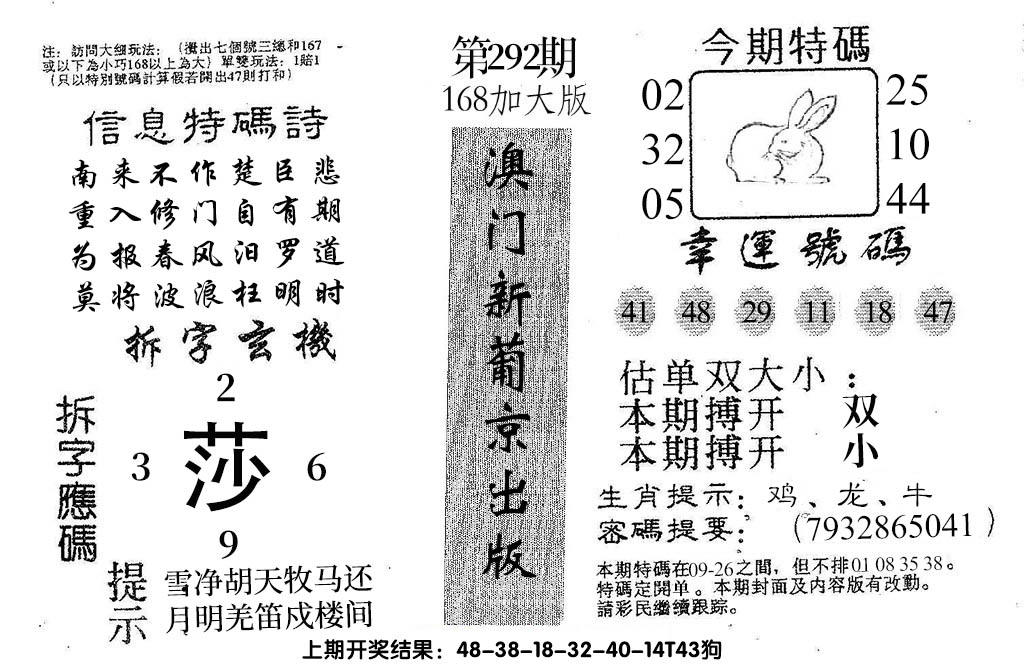 注：訪問大細玩法：（攪出七個號三總和167
或以下為小巧168以上為大）單雙玩法：1賠1
（只以特別號碼計算假若開出47則打和）
信息特碼詩
南来不作楚臣悲
重入修门自有期
为报春风汨罗道
莫将波浪枉明时
拆字玄機
拆字應碼
2
3 莎 6
9
提示
雪净胡天牧马还
月明羌笛戍楼间
第292期
168加大版
澳门新葡京出版
今期特碼
02 25
32 10
05 44
幸運號碼
41 48 29 11 18 47
估单双大小：
本期搏开 双
本期搏开 小
生肖提示：鸡、龙、牛
密碼提要：（7932865041）
本期特碼在09-26之間，但不排01 08 35 38。
特碼定開单。本期封面及内容版有改動。
請彩民繼續跟踪。
上期开奖结果：48-38-18-32-40-14T43狗